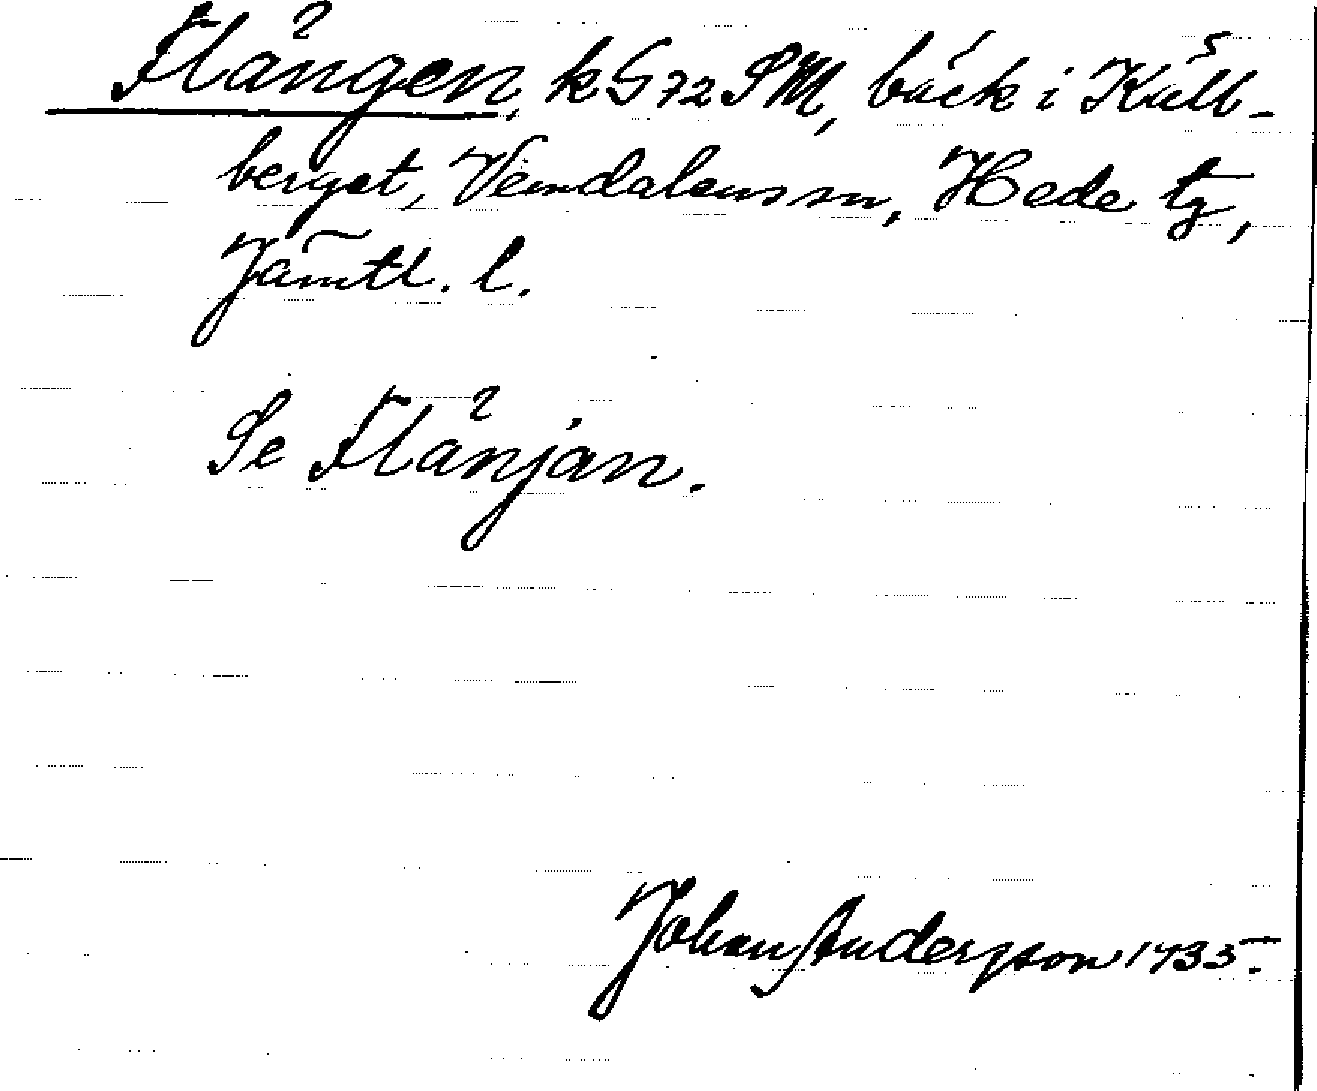 Flången, k G 72 SM, bäck i Kull-
berget, Vemdalens sn, Hede tg,
Jämtl. l.
Se Flånjan.
Johan Andersson 1935.